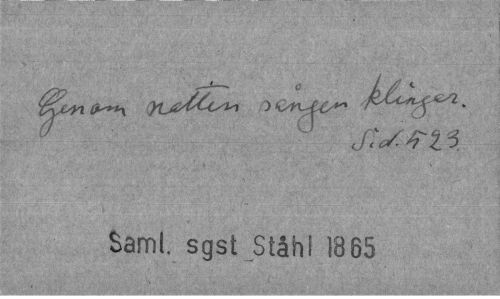 Genom natten sången klingar.
Sid. 523.
Saml. sgst Ståhl 1865